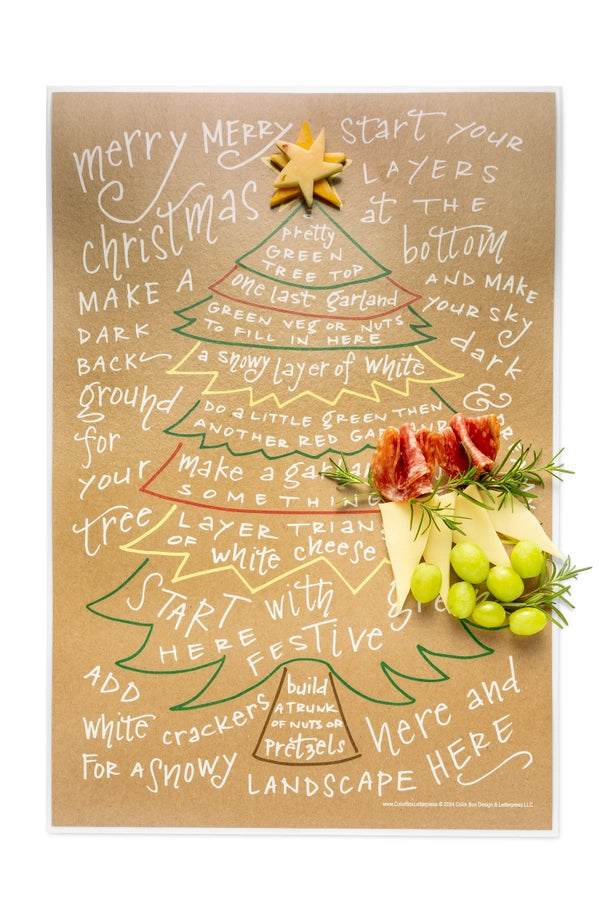 merry MERRY
christmas
MAKE A
DARK
BACK
ground
for
your
tree
start YOUR
LAYERS
at THE
bottom
AND MAKE
YOUR SKY
dark
&
pretty
GREEN
TREE TOP
one last garland
GREEN VEG OR NUTS
TO FILL IN HERE
a snowy layer of white
DO a LITTLE green THEN
ANOTHER RED
make a
SOMETHING
LAYER
OF white cheese
START with
HERE FESTIVE
build
A TRUNK
OF NUTS OR
pretzels
ADD
white crackers here and
FOR A SNOWY LANDSCAPE HERE
www.ColorBoxLetterpress © 2024 Color Box Design & Letterpress LLC